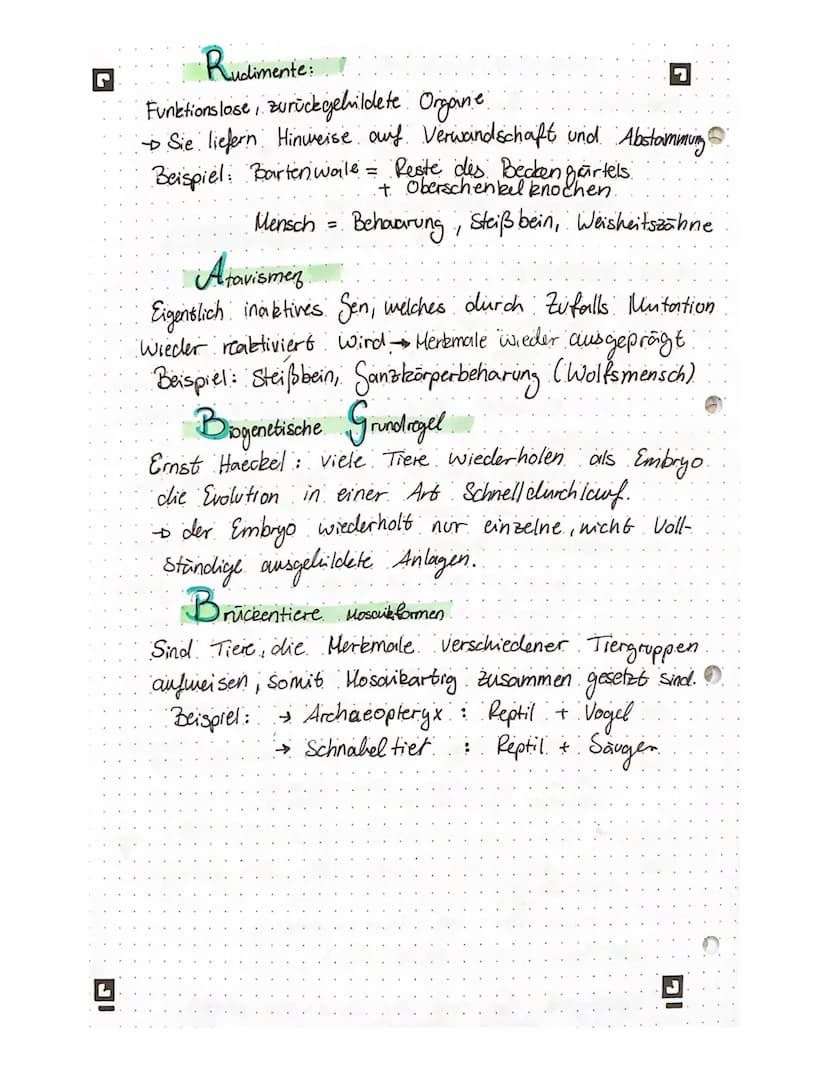 Rudimente:
Funktionslose, zurückgebildete Organe
→ Sie liefern Hinweise auf Verwandschaft und Abstammung
Beispiel: Bartenwale = Reste des Beckengürtels
+ Oberschenkelknochen
Mensch = Behaarung, Steißbein, Weisheitszähne
Atavismen
Eigentlich inaktives Gen, welches durch Zufalls Mutation
Wieder reaktiviert wird → Merkmale wieder ausgeprägt
Beispiel: Steißbein, Ganzkörperbeharung (Wolfsmensch)
Biogenetische Grundregel
Ernst Haeckel: viele Tiere wiederholen als Embryo
die Evolution in einer Art Schnelldurchlauf.
→ der Embryo wiederholt nur einzelne, nicht Voll-
ständige ausgebildete Anlagen.
Brückentiere Mosaikformen
Sind Tiere, die Merkmale verschiedener Tiergruppen
aufweisen, somit Mosaikartig zusammen gesetzt sind.
Beispiel: → Archaeopteryx : Reptil + Vogel
→ Schnabeltier : Reptil + Säuger